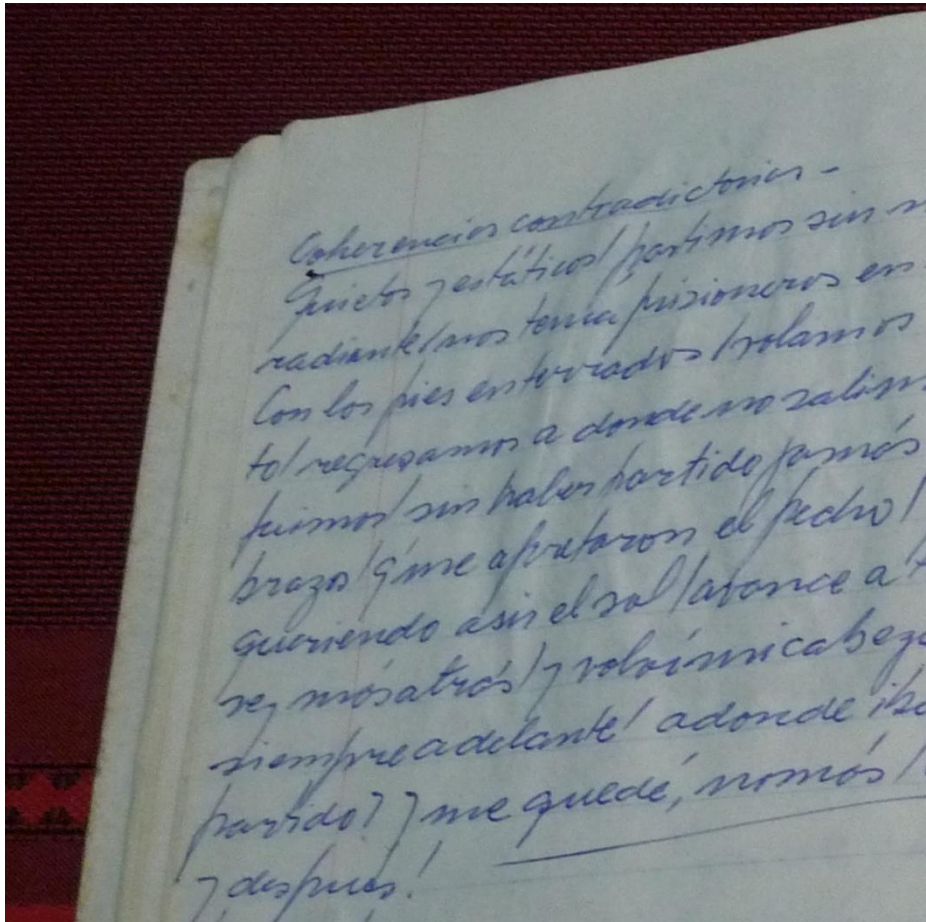 Coherencias contradictorias -
Quietos y estáticos/ partimos sin
radiante/ nos tenía prisioneros en
Con los pies enterrados/ volamos
to/ regresamos a donde no salim
fuimos/ sin haber partido jamás
brazos/ q' me apretaron el pecho/
queriendo asir el sol/ avance a
más atrás/ y volví mi cabeza
siempre adelante/ a donde iba
partido? y me quedé, nomás/
y después!